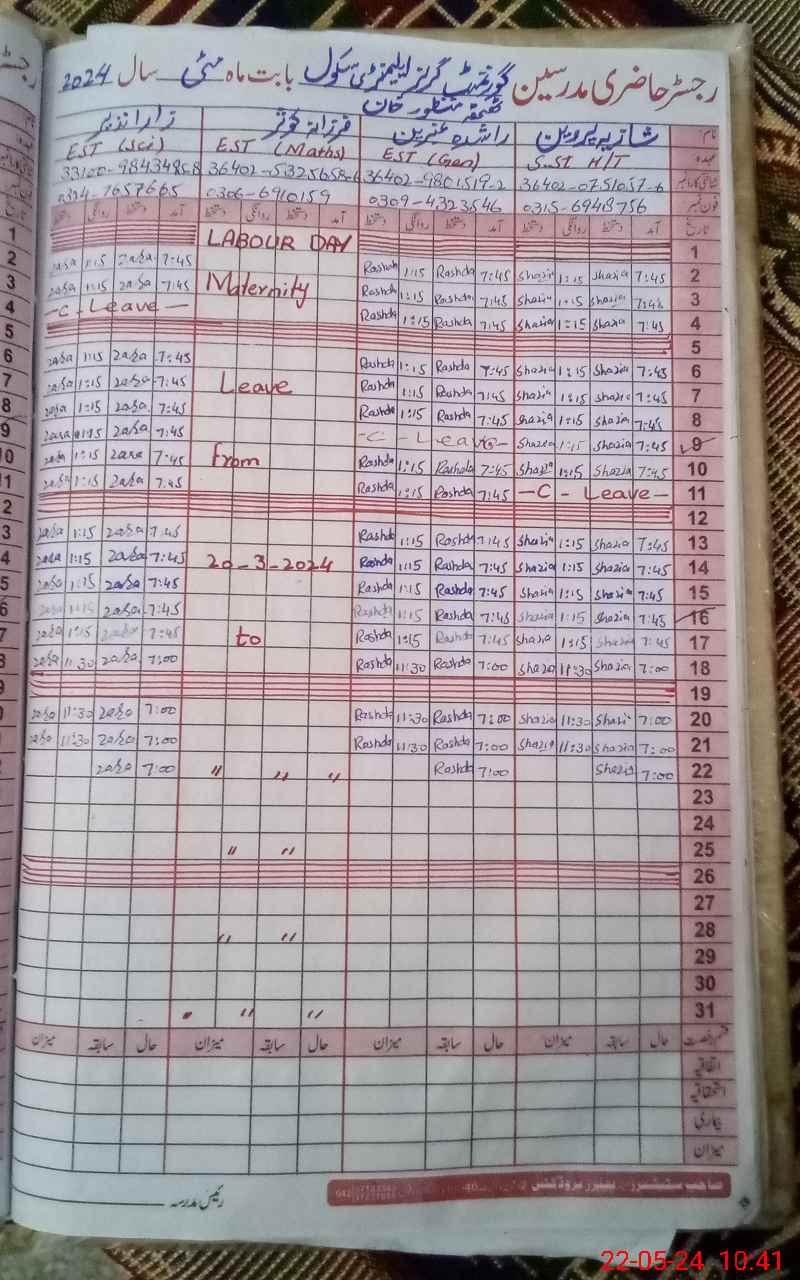 رجسٹر حاضری مدرسین گورنمنٹ گرلز ایلیمنٹری سکول بابت ماہ مئی سال 2024
ٹھٹھہ منظور خان
نام: شازیہ پروین راشدہ عنبرین فرزانہ کوثر زارا نذیر
عہدہ S.ST H/T EST (Gen) EST (Maths) EST (Sci)
36402-0751057-6 36402-9801519-2 36402-5325658-6 33100-9843485-8
فون نمبر 0315-6948756 0309-4323546 0306-6910159 0324-7657665
تاریخ آمد دستخط روانگی دستخط آمد دستخط روانگی دستخط آمد دستخط روانگی دستخط آمد دستخط روانگی دستخط
1 LABOUR DAY
2 7:45 Shazia 1:15 Shazia 7:45 Rashda 1:15 Rashda 7:45 زارا 1:15 زارا
3 7:45 Shazia 1:15 Shazia 7:45 Rashda 1:15 Rashda Maternity 7:45 زارا 1:15 زارا
4 7:45 Shazia 1:15 Shazia 7:45 Rashda 1:15 Rashda - C - Leave -
5
6 7:45 Shazia 1:15 Shazia 7:45 Rashda 1:15 Rashda 7:45 زارا 1:15 زارا
7 7:45 Shazia 1:15 Shazia 7:45 Rashda 1:15 Rashda Leave 7:45 زارا 1:15 زارا
8 7:45 Shazia 1:15 Shazia 7:45 Rashda 1:15 Rashda 7:45 زارا 1:15 زارا
9 7:45 Shazia 1:15 Shazia - C - Leave - 7:45 زارا 1:15 زارا
10 7:45 Shazia 1:15 Shazia 7:45 Rashda 1:15 Rashda From 7:45 زارا 1:15 زارا
11 - C - Leave - 7:45 Rashda 1:15 Rashda 7:45 زارا 1:15 زارا
12
13 7:45 Shazia 1:15 Shazia 7:45 Rashda 1:15 Rashda 7:45 زارا 1:15 زارا
14 7:45 Shazia 1:15 Shazia 7:45 Rashda 1:15 Rashda 20-3-2024 7:45 زارا 1:15 زارا
15 7:45 Shazia 1:15 Shazia 7:45 Rashda 1:15 Rashda 7:45 زارا 1:15 زارا
16 7:45 Shazia 1:15 Shazia 7:45 Rashda 1:15 Rashda 7:45 زارا 1:15 زارا
17 7:45 Shazia 1:15 Shazia 7:45 Rashda 1:15 Rashda to 7:45 زارا 1:15 زارا
18 7:00 Shazia 11:30 Shazia 7:00 Rashda 11:30 Rashda 7:00 زارا 11:30 زارا
19
20 7:00 Shazia 11:30 Shazia 7:00 Rashda 11:30 Rashda 7:00 زارا 11:30 زارا
21 7:00 Shazia 11:30 Shazia 7:00 Rashda 11:30 Rashda 7:00 زارا 11:30 زارا
22 7:00 Shazia 7:00 Rashda " " " 7:00 زارا
23
24
25 " "
26
27
28 " "
29
30
31 " "
قسم رخصت حال سابقہ میزان حال سابقہ میزان حال سابقہ میزان حال سابقہ میزان
اتفاقیہ
استحقاقیہ
بیماری
میزان
رئیس مدرسہ
22-05-24 10:41